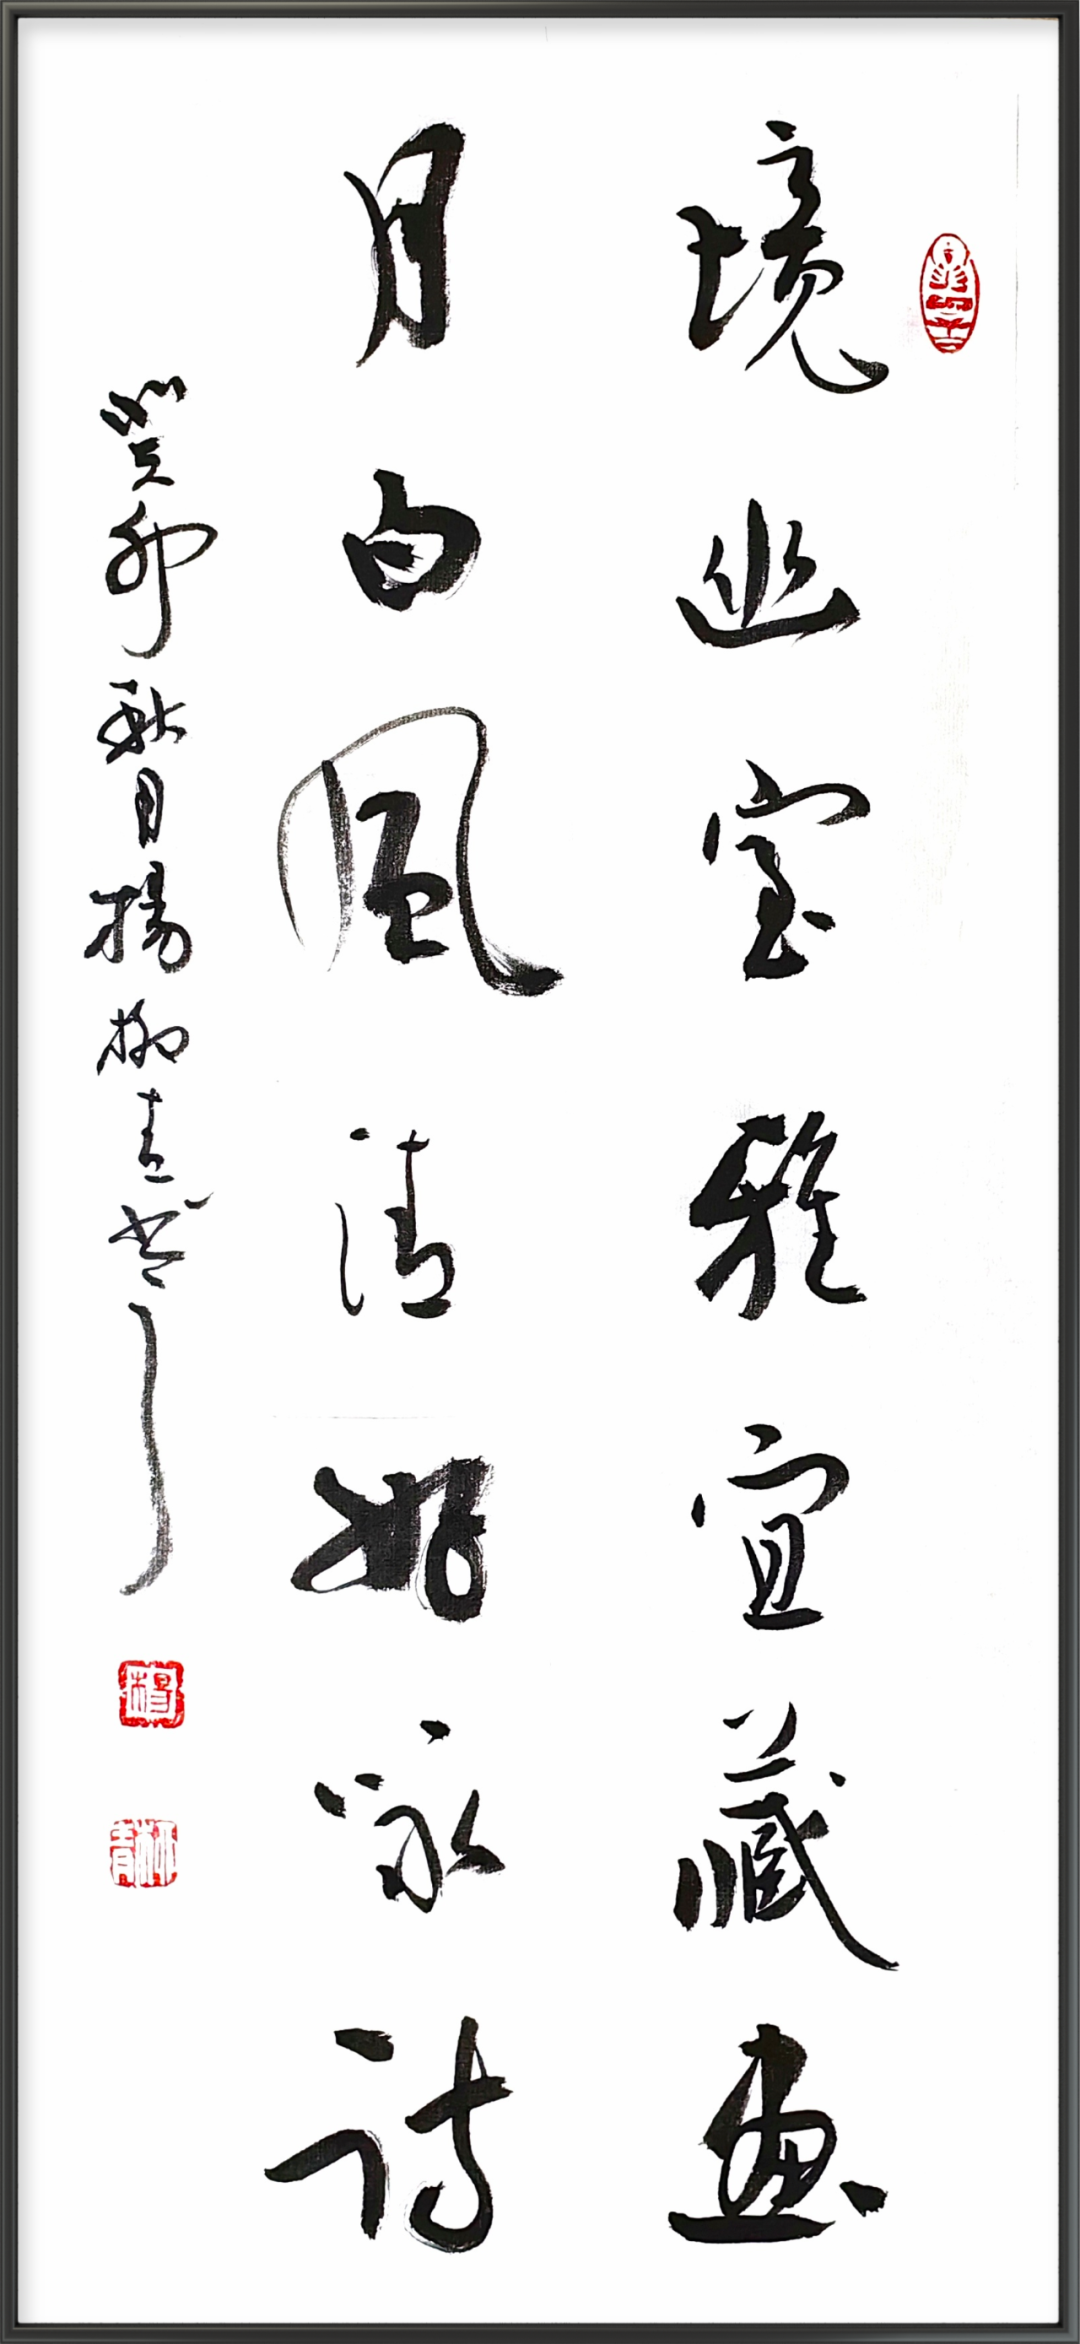 境幽室雅宜藏画
月白風清如咏诗
癸卯秋月楊柳青书
楊
柳青